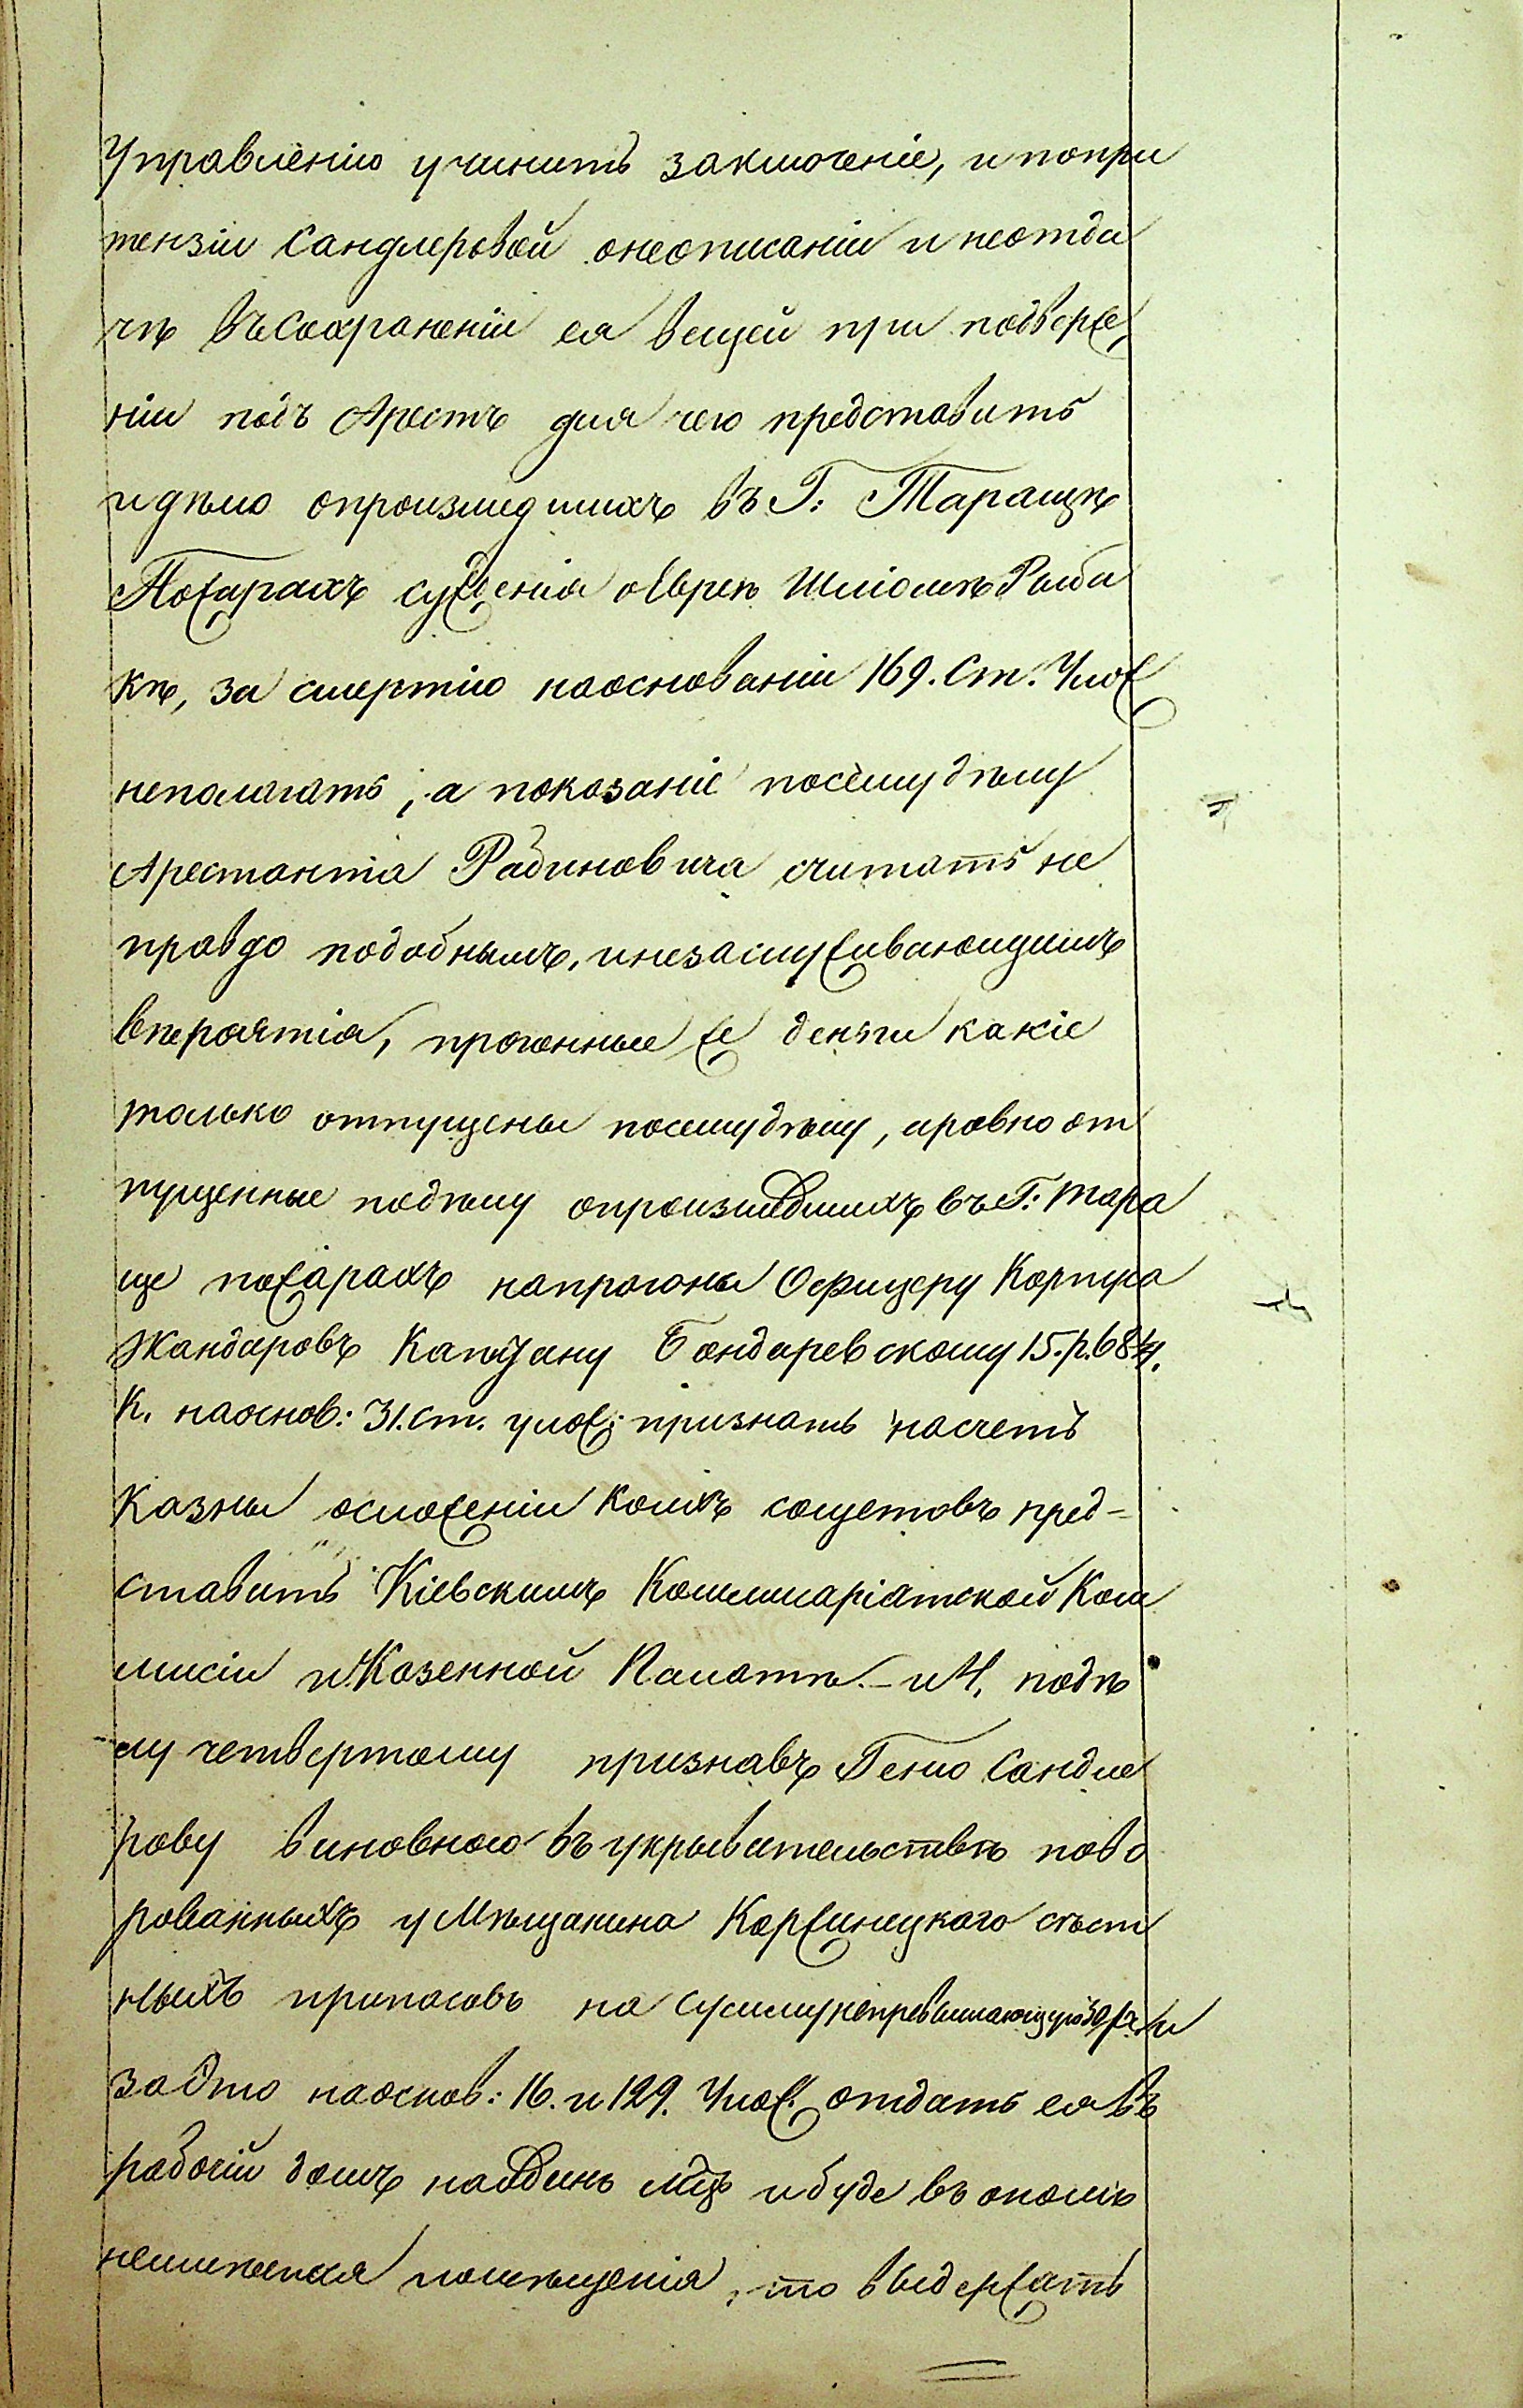 Управленію учинить заключеніе, и попри
тензіи Сандлеровой онеописаніи и неотда
чѣ въ сохраненіи ея вещей при подверже
ніи подъ Арестъ для чего представить
и дѣло опроизшедшихъ въ Г: Таращѣ
Пожарахъ сужденія о Евреѣ Шліомѣ Рыба
кѣ, за смертію наоснованіи 169. Ст. Улож
неполагать, а показаніе посемудѣлу
Арестанта Рабиновича считать не
правдо подобнымъ, инезаслуживающимъ
вѣроятія, прогонные же деньги какіе
только отпущены посемудѣлу, иравно от
пущенные подѣлу опроизшедшихъ въ Г: Тара
ще пожарахъ напрогоны Офицеру Корпуса
Жандаровъ Капитану Бондаревскому 15. р. 68 ¾.
К. наоснов: 31. ст. улож: признать насчетъ
Казны осложеніи коихъ сощетовъ пред-
ставить Кіевскимъ Коммисаріатской Ком
мисіи и Казенной Палатѣ.- и 4, подѣ
лу четвертому признавъ Геню Сандле
рову виновною въ укрывательствѣ пово
рованныхъ у Мѣщанина Коржинецкаго съест
ныхъ припасовъ на сумму непревышающую 30 р. и
за Это наоснов: 16. и 129. Улож. отдать ея въ
рабочій домъ наодинъ мцъ ибуде въ ономъ
неимѣется помѣщенія, то выдержать